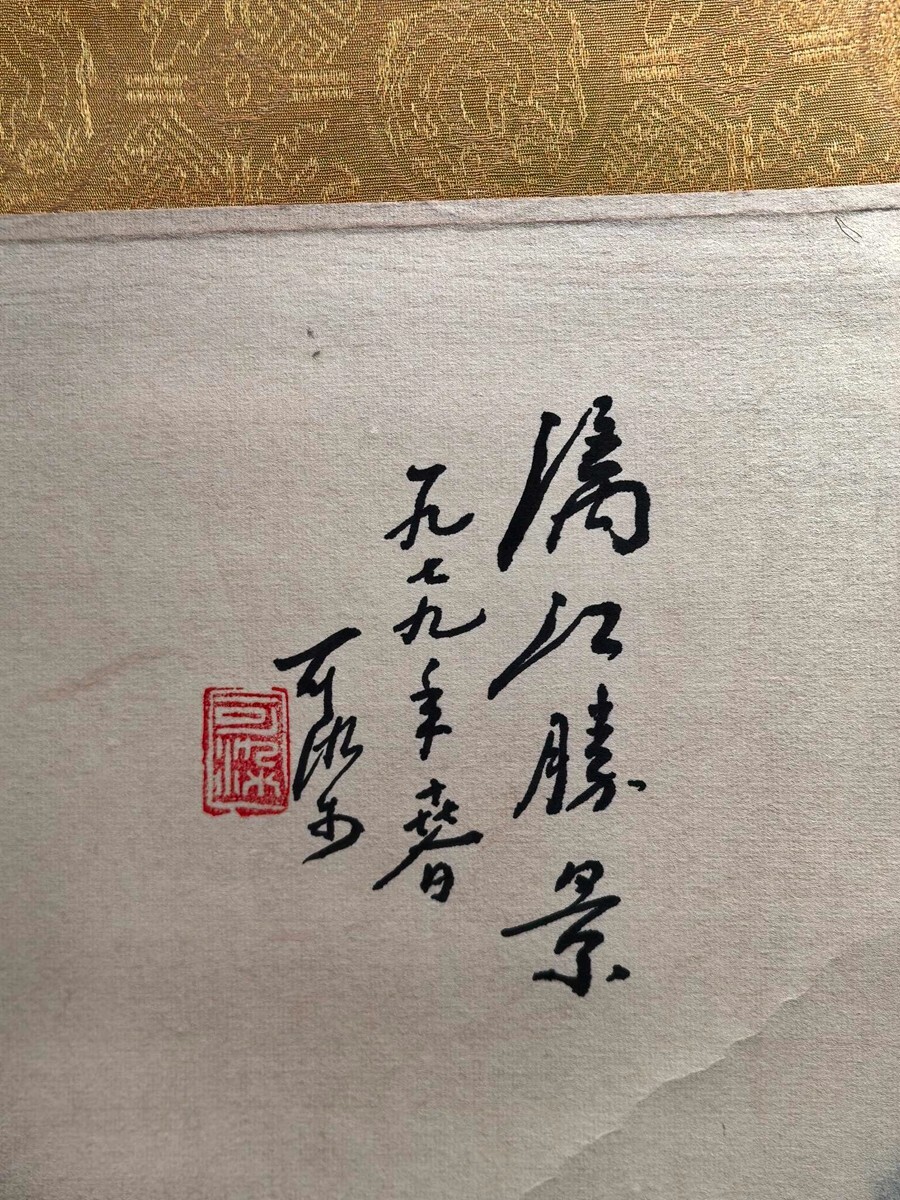 漓江勝景
一九七九年春
可染
可染